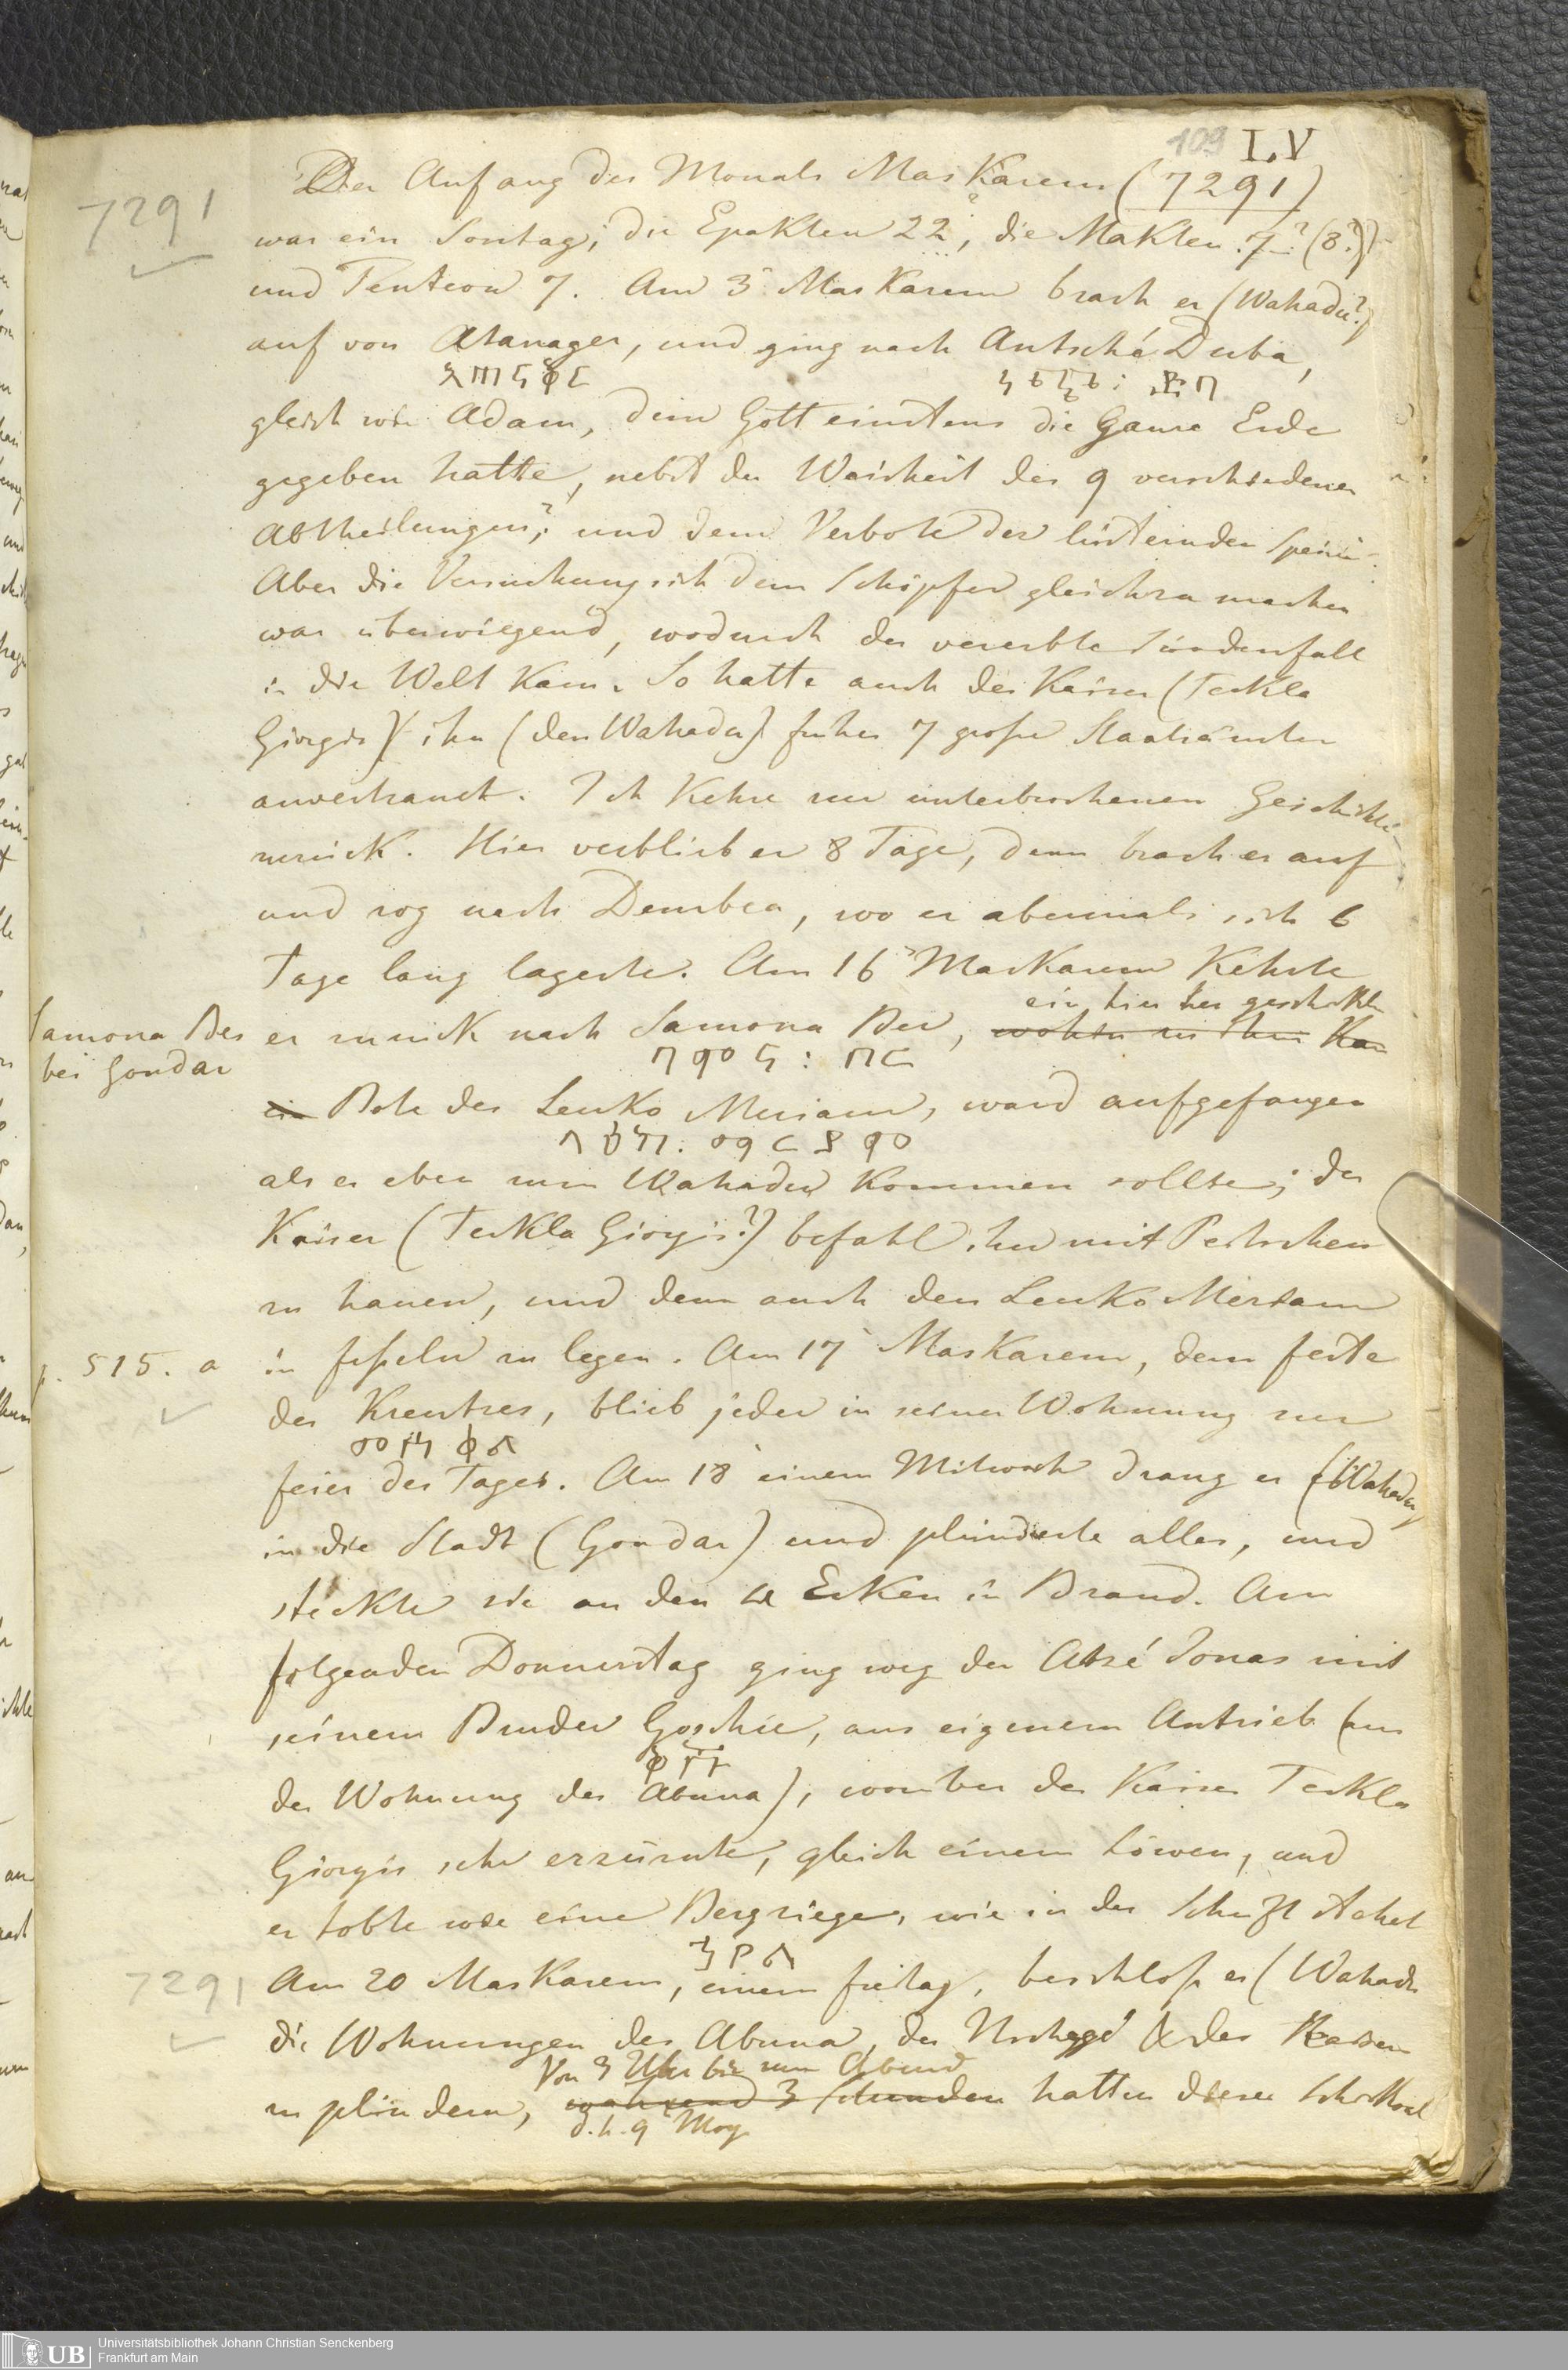 109 I.V
7291
Der Anfang des Monats Maskarem (7291)
war ein Sontag; die Epakten 22, die Makten 7? (8?)
und Tenteon 7. Am 3 Maskarem brach er (Wahadu?)
auf von Atanager, und ging nach Antsché Duba,
gleich wie Adam, dem Gott einstens die Ganze Erde
gegeben hatte, nebst der Weisheit der 9 verschiedenen
Abtheilungen?; und dem Verbote der lüsternden Speise.
Aber die Versuchung sich dem Schöpfer gleich zu machen
war überwiegend, wodurch der vererbte Sündenfall
in die Welt kam. So hatte auch der Kaiser (Teckla
Giorgis) ihn (den Wahadu) früher 7 grosse Staatsämter
anvertraut. Ich Kehre zur unterbrochenen Geschichte
zurück. Hier verblieb er 8 Tage, dann brach er auf
und zog nach Dembea, wo er abermals sich 6
Tage lang lagerte. Am 16 Maskarem Kehrte
ein hier her geschickter
Samona Ber
bei Gondar
er zurück nach Samona Ber, wohin zu ihm Kam
በ ምና : በር
ein Bote des Leuko Meriam, ward aufgefangen
als er eben zum Wahadu Kommen sollte; der
Kaiser (Teckla Giorgis?) befahl ihn mit Peitschen
zu hauen, und dann auch den Leuko Meriam
p. 515. a
in fesseln zu legen. Am 17 Maskarem, dem feste
des Kreutzes, blieb jeder in seiner Wohnung zur
መስቀል
feier des Tages. Am 18 einem Mitwoch drang er (Wahadu)
in die Stadt (Gondar) und plünderte alles, und
steckte sie an den 4 Ecken in Brand. Am
folgenden Donnerstag ging weg der Atsé Jonas mit
seinem Bruder Goschie, aus eigenem Antrieb (aus
der Wohnung des Abuna), worüber der Kaiser Teckla
Giorgis sehr erzürnte, gleich einem Löwen, und
er tobte wie eine Bergziege, wie in der Schrift stehet
7291
Am 20 Maskarem, einem freitag, beschloss er (Wahadu
die Wohnungen des Abuna, des Itschegé & des Kaisers
Von 3 Uhr bis zum Abend
zu plündern, während 3 Stunden hatten diese Schicksal
d.h. 9 Morg.
UB Universitätsbibliothek Johann Christian Senckenberg
Frankfurt am Main